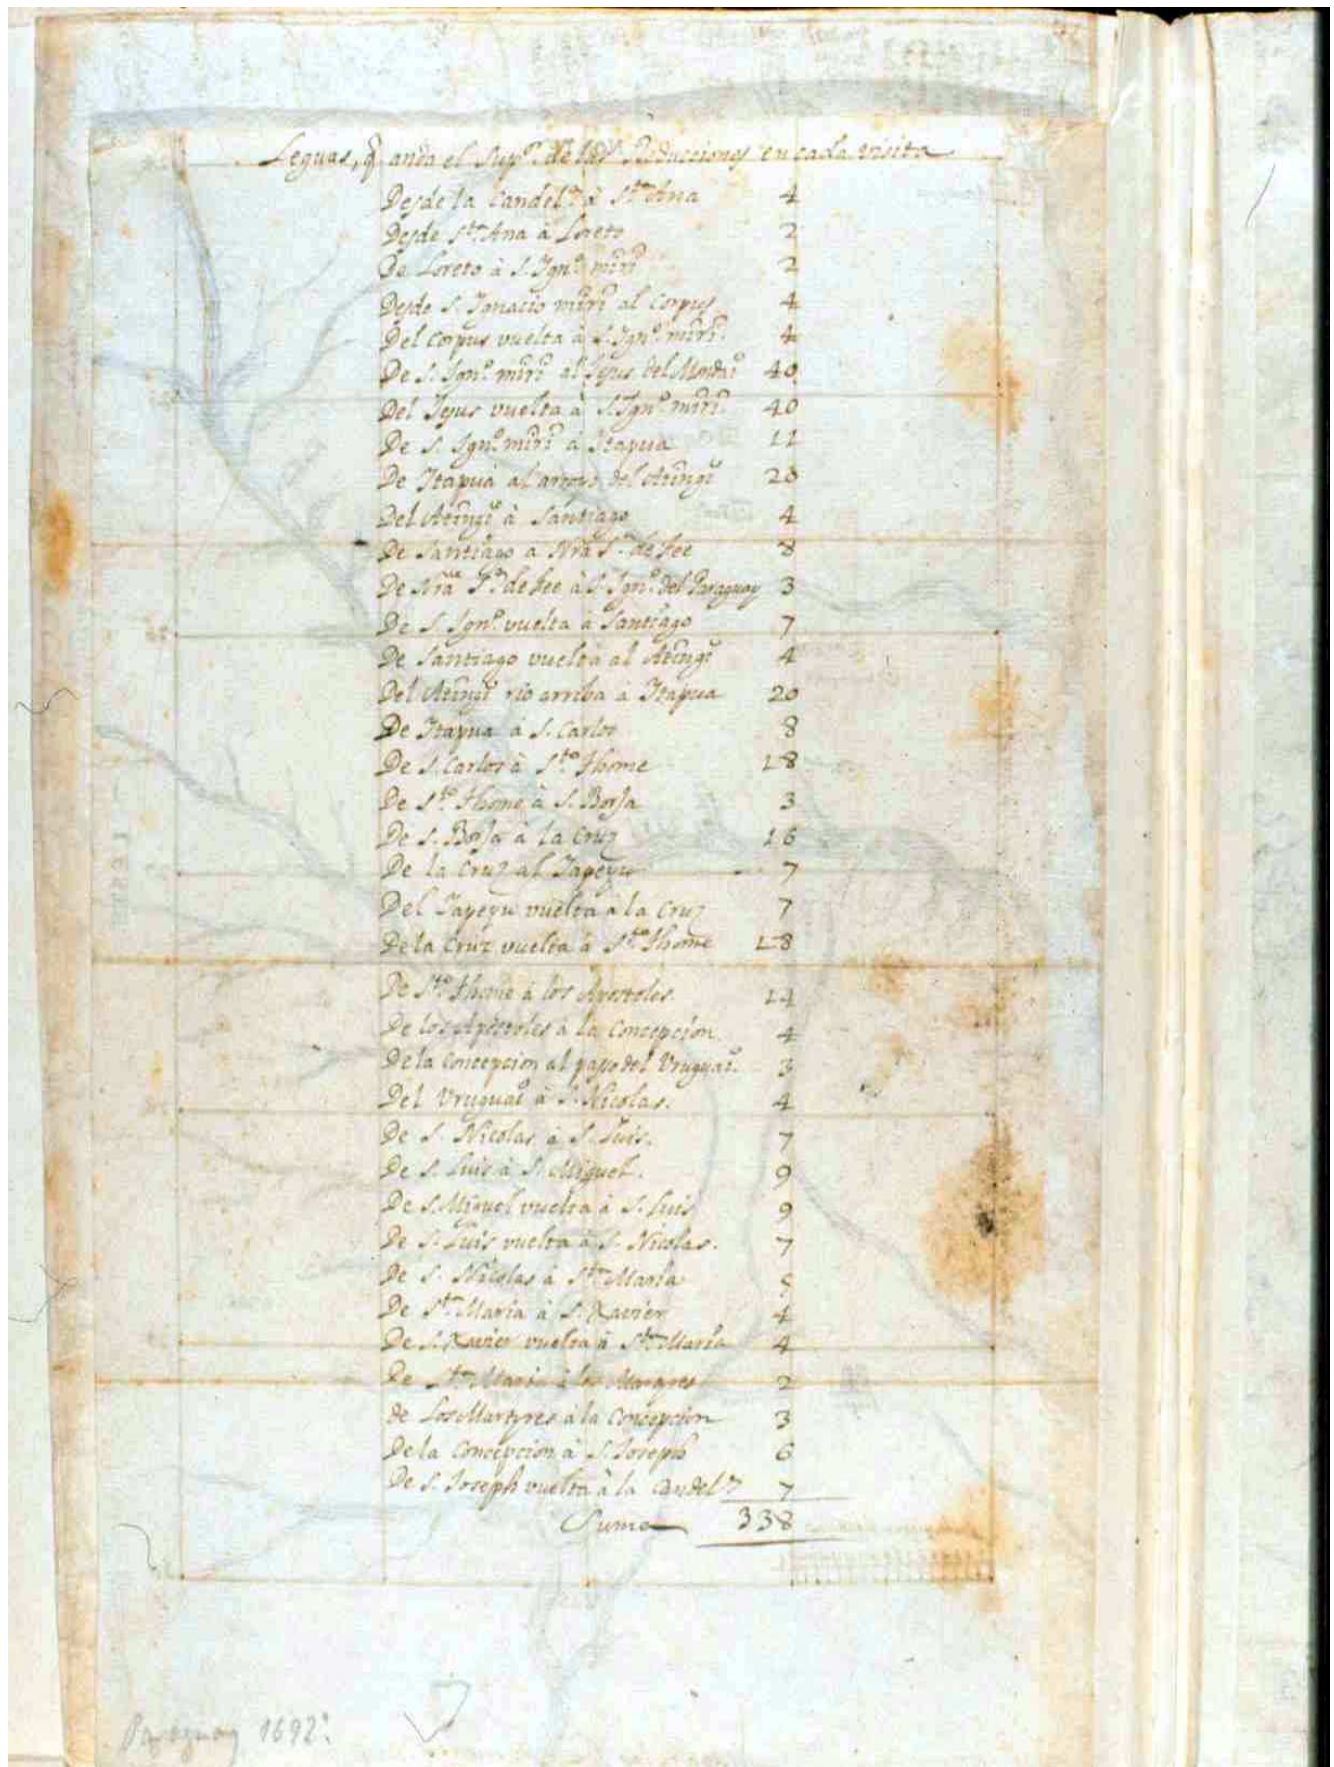 Leguas, q̃ anda el Sup.or de las Reducciones en cada visita
Desde la Candel.a à S.ta Ana 4
Desde S.ta Ana à Loreto 2
De Loreto à S. Ign.o mirĩ 2
Desde S. Ignacio mirĩ al Corpus 4
Del Corpus vuelta à S. Ign.o mirĩ. 4
De S. Ign.o mirĩ al Jesus del Mondaĩ 40
Del Jesus vuelta à S. Ign.o mirĩ. 40
De S. Ign.o mirĩ à Itapua 11
De Itapuà al arroyo del Atingĩ 20
Del Atingĩ à Santiago 4
De Santiago a Nrã S.ra de Fee 8
De Nrã S.ra de Fee à S. Ign.o del Paraguay 3
De S. Ign.o vuelta à Santiago 7
De Santiago vuelta al Atingĩ 4
Del Atingĩ rio arriba à Itapua 20
De Itapua à S. Carlos 8
De S. Carlos à S.to Thome 18
De S.to Thome à S. Borja 3
De S. Borja à la Cruz 16
De la Cruz al Iapeyu 7
Del Iapeyu vuelta à la Cruz 7
De la Cruz vuelta à S.to Thome 18
De S.to Thome à los Apostoles. 14
De los Apostoles à la Concepcion. 4
De la Concepcion al passo del Vruguaĩ. 3
Del Vruguaĩ à S. Nicolas. 4
De S. Nicolas à S. Luis. 7
De S. Luis à S. Miguel. 9
De S. Miguel vuelta à S. Luis 9
De S. Luis vuelta à S. Nicolas. 7
De S. Nicolas à S.ta Maria 5
De S.ta Maria à S. Xavier 4
De S. Xavier vuelta à S.ta Maria 4
De S.ta Maria à los Martyres 2
de Los Martyres à la Concepcion 3
De la Concepcion à S. Joseph 6
De S. Joseph vuelta à la Candel.a 7
Suma 338
Paraguay 1692?